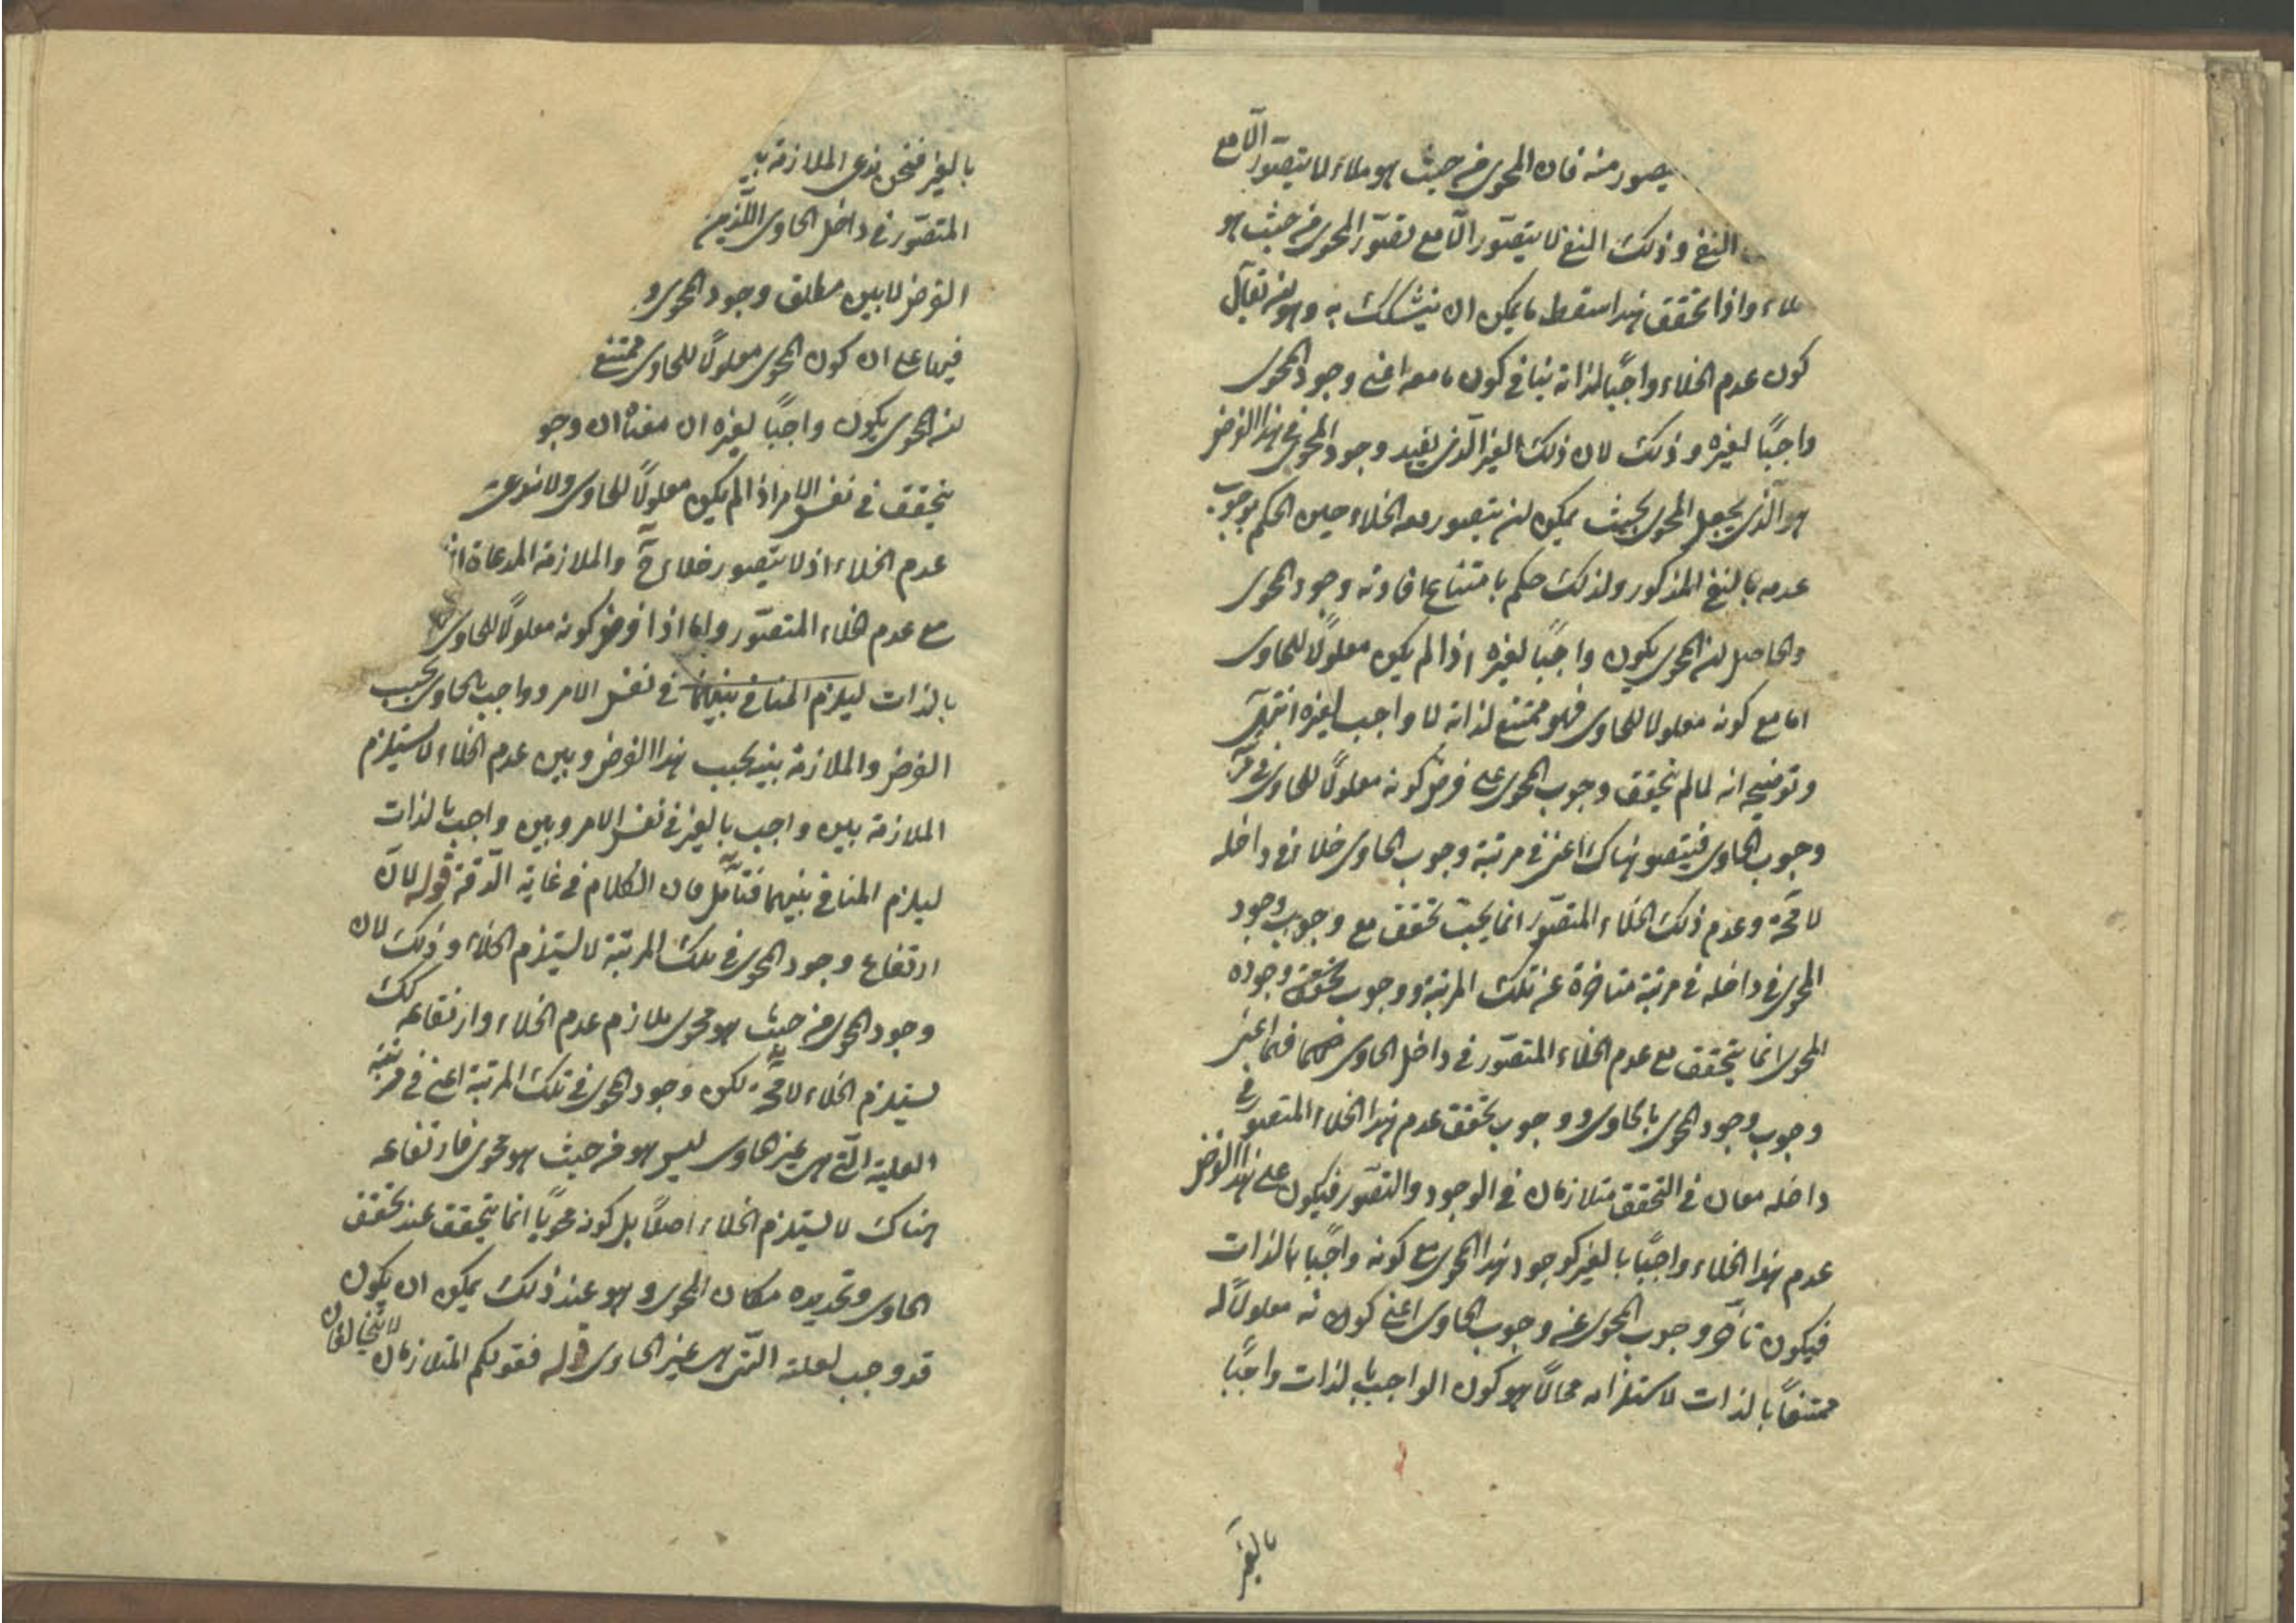 يصور منه فان المحوى من حيث هو ملاء لا يتصور الا مع
النفى و ذلك النفى لا يتصور الا مع تصور المحوى من حيث هو
ملاء واذا تحقق هذا سقط ما يمكن ان يتشكك به وهو ان يقال
كون عدم الخلاء واجبًا لذاته ينافى كون ما معه اعنى وجود المحوى
واجبًا لغيره و ذلك لان ذلك الغير الّذى يفيد وجود المحوى فى هذا الفرض
هو الّذى يجعل المحوى بحيث يمكن ان يتصور معه الخلاء حين الحكم بوجوب
عدمه بالنفى المذكور ولذلك حكم بامتناع افادته وجود المحوى
والحاصل ان المحوى يكون واجبًا لغيره اذا لم يكن معلولًا للحاوى
اما مع كونه معلولا للحاوى فهو ممتنع لذاته لا واجب لغيره انتهى
وتوضيحه انه لما لم يتحقق وجوب المحوى على فرض كونه معلولًا للحاوى فى مرتبة
وجوب الحاوى فيتصور هناك اعنى فى مرتبة وجوب الحاوى خلاء فى داخله
لا محة وعدم ذلك الخلاء المتصوّر انما يجب تحقق مع وجوب وجود
المحوى فى داخله فى مرتبة متاخرة عن تلك المرتبة ووجوب تحقق وجوده
المحوى انما يتحقق مع عدم الخلاء المتصّور فى داخل الحاوى فهما اعنى
وجوب وجود المحوى بالحاوى ووجوب تحقق عدم هذا الخلاء المتصور فى
داخله معان فى التحقق متلازمان فى الوجود والتصّور فيكون على هذا الفرض
عدم هذا الخلاء واجبًا بالغير كوجود هذا المحوى مع كونه واجبًا بالذات
فيكون تاخّر وجوب المحوى عن وجوب الحاوى اعنى كونه معلولًا له
ممتنعًا بالذات لاستلزامه محالًا هو كون الواجب بالذات واجبًا
بالغير
بالغير فنحن ندعى الملازمة بين
المتصّور فى داخل الحاوى اللّذين
الفرض لا بين مطلق وجود المحوى و
فيما على ان كون المحوى معلولًا للحاوى ممتنع
ان المحوى يكون واجبًا لغيره ان معناه ان وجو
يتحقق فى نفس الامر اذا لم يكن معلولًا للحاوى ولا نوعه
عدم الخلاء اذ لا يتصور خلاء ح والملازمة المدعاة
مع عدم الخلاء المتصّور ولها اذا فرض كونه معلولًا للحاوى
بالذات ليلزم المنافى بينهما فى نفس الامر وواجب بالحاوى بحسب
الفرض والملازمة بينه بحسب هذا الفرض وبين عدم الخلاء لا يستلزم
الملازمة بين واجب بالغير فى نفس الامر وبين واجب بالذات
ليلزم المنافى بينهما فتأمّل فان الكلام فى غاية الدّقة قوله لانّ
ارتفاع وجود المحوى فى تلك المرتبة لا يستلزم الخلاء و ذلك لان
وجود المحوى من حيث هو محوى ملازم عدم الخلاء وارتفاعه كك
يستلزم الخلاء لا محة لكن وجود المحوى فى تلك المرتبة اعنى فى مرتبة
العلية الّتى هى غير الحاوى ليس هو من حيث هو محوى فارتفاعه
هناك لا يستلزم الخلاء اصلًا بل كونه محويًا انما يتحقق عند تحقق
الحاوى وتحديده مكان المحوى و هو عند ذلك يمكن ان يكون
قد وجب لعلته الّتى هى غير الحاوى قوله فقولكم المتلازمان لا يتخالفان